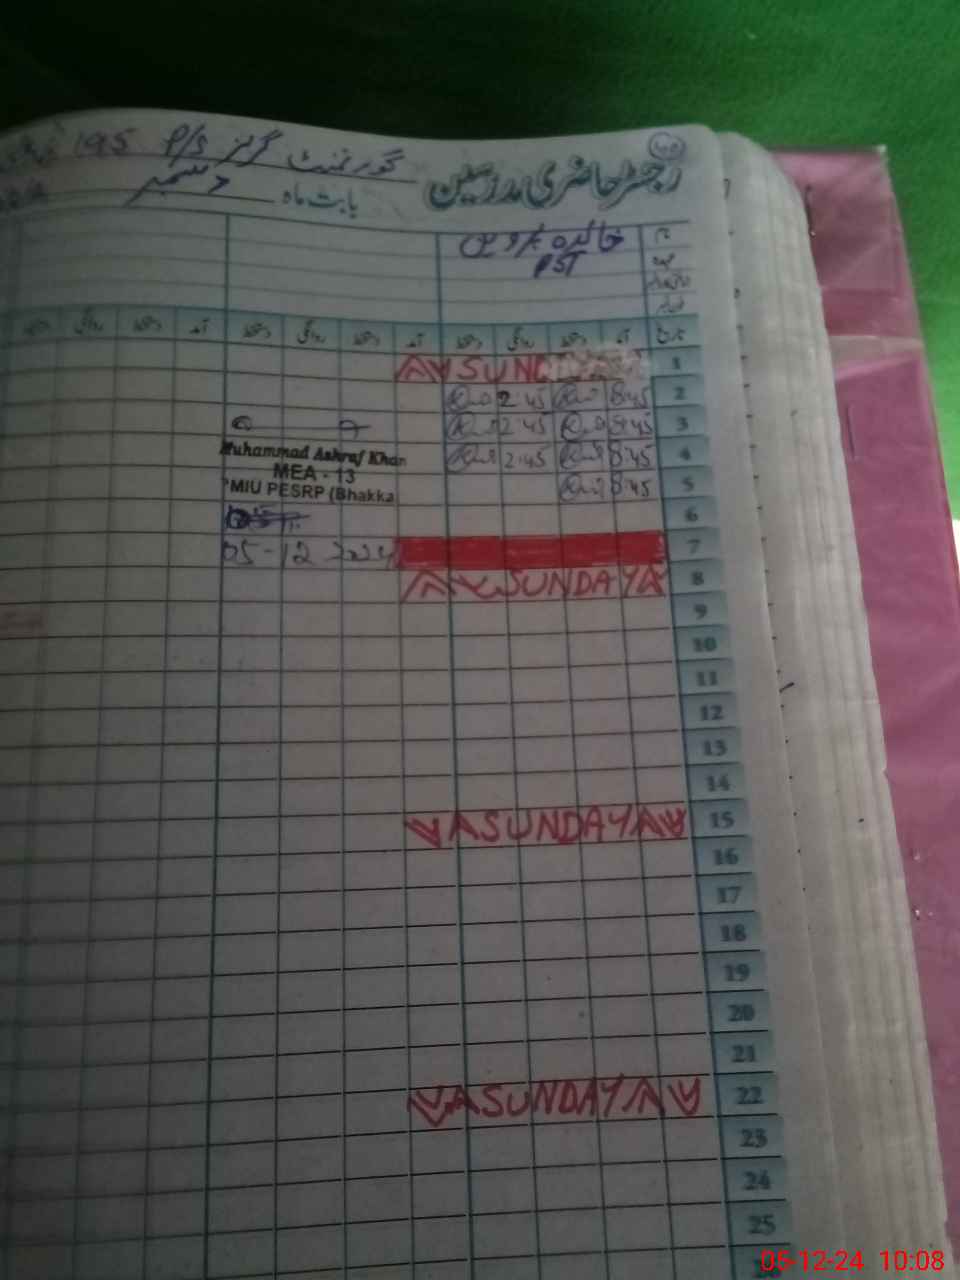 40
رجسٹر حاضری مدرسین گورنمنٹ گرلز P/S 195
بابت ماہ دسمبر
خالدہ پروین
PST
تاریخ آمد دستخط روانگی دستخط آمد دستخط روانگی دستخط آمد دستخط روانگی دستخط
1 SUND
2 8:45 2:45
3 8:45 2:45
4 8:45 2:45
5 8:45
Muhammad Ashraf Khan
MEA - 13
PMIU PESRP (Bhakka
6
7
05-12 2024
8 SUNDAY
9
10
11
12
13
14
15 SUNDAY
16
17
18
19
20
21
22 SUNDAY
23
24
25
05-12-24 10:08